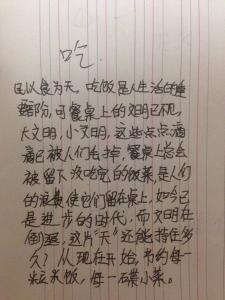 吃
民以食为天。吃饭是人生活的重
要部份,可餐桌上的文明已积,
大文明,小文明,这些点点滴
滴已被人们丢掉,餐桌上总会
被留下没吃完的饭菜,是人们
的浪费使它们留在桌上,如今已
是进步的时代,而文明在
倒退,这片"天"还能持住多
久?从现在开始,节约每一
粒米饭,每一碟小菜。